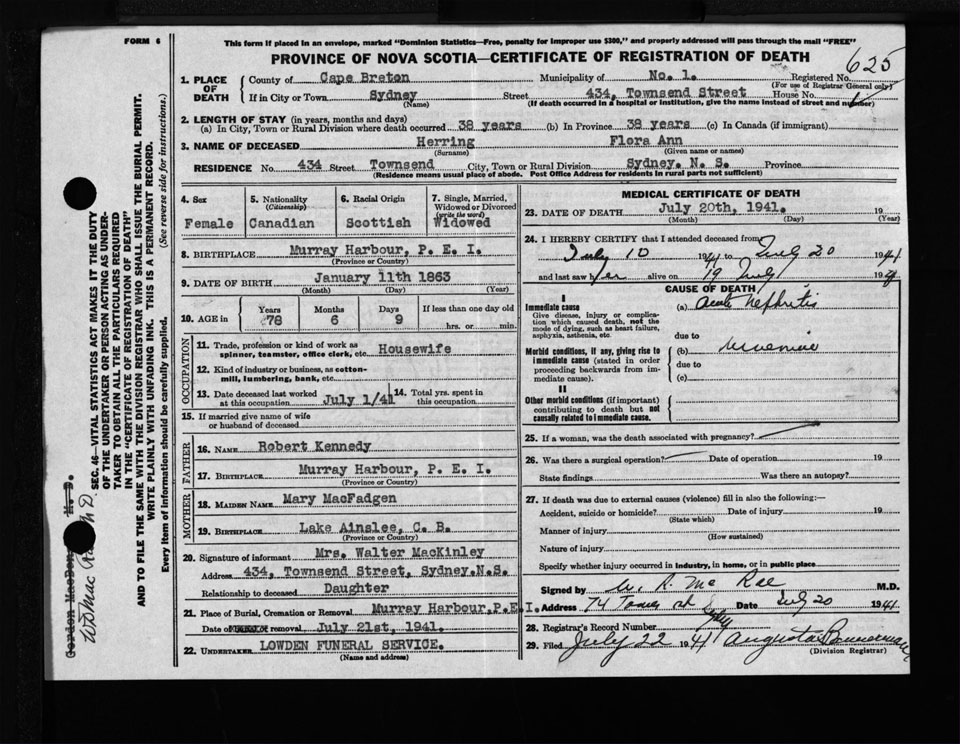 FORM 6
This form if placed in an envelope, marked "Dominion Statistics—Free, penalty for improper use $300," and properly addressed will pass through the mail "FREE"
PROVINCE OF NOVA SCOTIA—CERTIFICATE OF REGISTRATION OF DEATH
625
1. PLACE OF DEATH
County of Cape Breton Municipality of No. 1. Registered No.
(For use of Registrar General only)
If in City or Town Sydney Street 434, Townsend Street House No.
(Name) (If death occurred in a hospital or institution, give the name instead of street and number)
2. LENGTH OF STAY (in years, months and days)
(a) In City, Town or Rural Division where death occurred 38 years (b) In Province 38 years (c) In Canada (if immigrant)
3. NAME OF DECEASED Herring Flora Ann
(Surname) (Given name or names)
RESIDENCE No. 434 Street Townsend City, Town or Rural Division Sydney. N. S. Province
(Residence means usual place of abode. Post Office Address for residents in rural parts not sufficient)
4. Sex
Female
5. Nationality
(Citizenship)
Canadian
6. Racial Origin
Scottish
7. Single, Married, Widowed or Divorced
(write the word)
Widowed
8. BIRTHPLACE Murray Harbour, P. E. I.
(Province or Country)
9. DATE OF BIRTH January 11th 1863
(Month) (Day) (Year)
10. AGE in
Years Months Days If less than one day old
78 6 9 hrs. or min.
OCCUPATION
11. Trade, profession or kind of work as spinner, teamster, office clerk, etc. Housewife
12. Kind of industry or business, as cotton-mill, lumbering, bank, etc.
13. Date deceased last worked at this occupation July 1/41
14. Total yrs. spent in this occupation
15. If married give name of wife or husband of deceased
FATHER
16. NAME Robert Kennedy
17. BIRTHPLACE Murray Harbour, P. E. I.
(Province or Country)
MOTHER
18. MAIDEN NAME Mary MacFadgen
19. BIRTHPLACE Lake Ainslee, C. B.
(Province or Country)
20. Signature of informant Mrs. Walter MacKinley
Address 434, Townsend Street, Sydney.N.S.
Relationship to deceased Daughter
21. Place of Burial, Cremation or Removal Murray Harbour,P.E.I.
Date of removal July 21st, 1941.
22. UNDERTAKER LOWDEN FUNERAL SERVICE.
(Name and address)
MEDICAL CERTIFICATE OF DEATH
23. DATE OF DEATH July 20th, 1941. 19
(Month) (Day) (Year)
24. I HEREBY CERTIFY that I attended deceased from
July 10 1941 to July 20 1941
and last saw her alive on 19 July 1941
CAUSE OF DEATH
I
Immediate cause
Give disease, injury or complication which caused death, not the mode of dying, such as heart failure, asphyxia, asthenia, etc.
(a) Acute Nephritis
due to
Morbid conditions, if any, giving rise to immediate cause (stated in order proceeding backwards from immediate cause).
(b) Uraemia
due to
(c)
II
Other morbid conditions (if important) contributing to death but not causally related to immediate cause.
25. If a woman, was the death associated with pregnancy?
26. Was there a surgical operation? Date of operation 19
State findings Was there an autopsy?
27. If death was due to external causes (violence) fill in also the following:—
Accident, suicide or homicide? Date of injury 19
(State which)
Manner of injury
(How sustained)
Nature of injury
Specify whether injury occurred in industry, in home, or in public place
Signed by W. A. Mc Rae M.D.
Address 74 Date July 20 1941
28. Registrar's Record Number
29. Filed July 22 1941 Augusta Bannerman
(Division Registrar)
SEC. 46—VITAL STATISTICS ACT MAKES IT THE DUTY
OF THE UNDERTAKER OR PERSON ACTING AS UNDER-
TAKER TO OBTAIN ALL THE PARTICULARS REQUIRED
IN THE "CERTIFICATE OF REGISTRATION OF DEATH"
AND TO FILE THE SAME WITH THE DIVISION REGISTRAR WHO SHALL ISSUE THE BURIAL PERMIT.
WRITE PLAINLY WITH UNFADING INK. THIS IS A PERMANENT RECORD.
Every item of information should be carefully supplied. (See reverse side for instructions.)